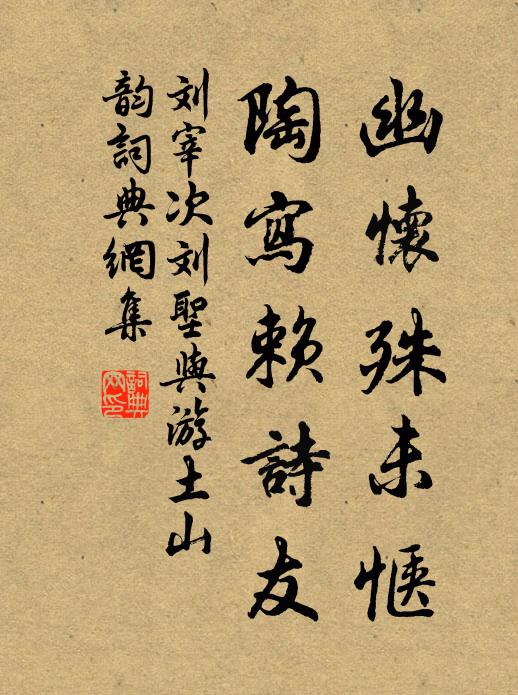 幽懷殊未愜
陶寫赖詩友
刘宰次刘聖與游土山
韵詞典網集
詞典網印